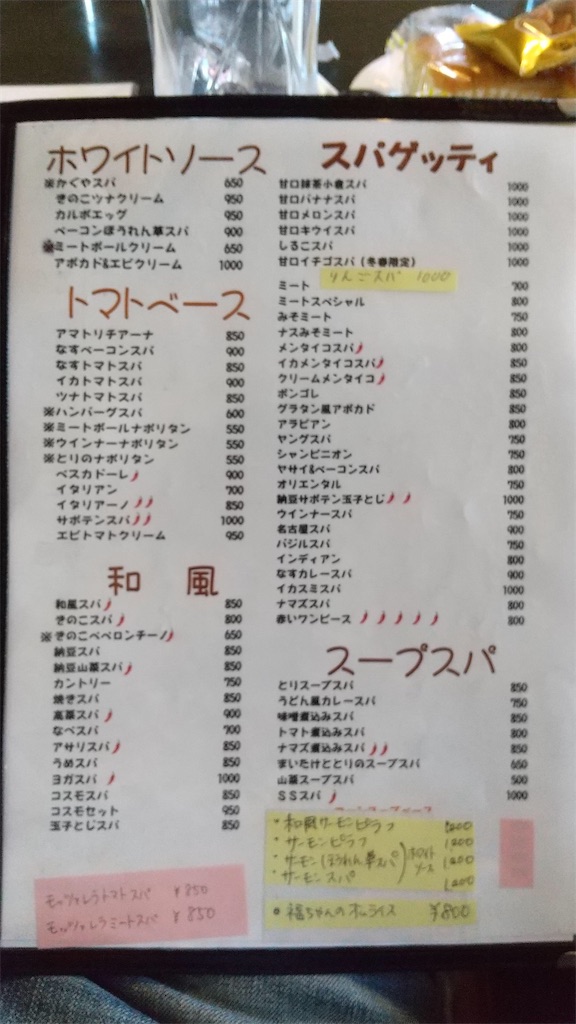 ホワイトソース
※かぐやスパ 650
きのこツナクリーム 950
カルボエッグ 950
ベーコンほうれん草スパ 900
※ミートボールクリーム 650
アボカド&エビクリーム 1000
トマトベース
アマトリチアーナ 850
なすベーコンスパ 900
なすトマトスパ 850
イカトマトスパ 900
ツナトマトスパ 850
※ハンバーグスパ 600
※ミートボールナポリタン 550
※ウインナーナポリタン 550
※とりのナポリタン 550
ペスカドーレ 900
イタリアン 700
イタリアーノ 850
サボテンスパ 1000
エビトマトクリーム 950
和風
和風スパ 850
きのこスパ 800
※きのこペペロンチーノ 650
納豆スパ 850
納豆山菜スパ 850
カントリー 750
焼きスパ 850
高菜スパ 900
なべスパ 700
アサリスパ 850
うめスパ 850
ヨガスパ 1000
コスモスパ 850
コスモセット 950
玉子とじスパ 850
モッツァレラトマトスパ ¥850
モッツァレラミートスパ ¥850
スパゲッティ
甘口抹茶小倉スパ 1000
甘口バナナスパ 1000
甘口メロンスパ 1000
甘口キウイスパ 1000
しるこスパ 1000
甘口イチゴスパ(冬春限定) 1000
りんごスパ 1000
ミート 700
ミートスペシャル 800
みそミート 750
ナスみそミート 800
メンタイコスパ 800
イカメンタイコスパ 850
クリームメンタイコ 850
ボンゴレ 850
グラタン風アボカド 850
アラビアン 800
ヤングスパ 750
シャンピニオン 750
ヤサイ&ベーコンスパ 800
オリエンタル 750
納豆サボテン玉子とじ 1000
ウインナースパ 750
名古屋スパ 900
バジルスパ 750
インディアン 800
なすカレースパ 900
イカスミスパ 1000
ナマズスパ 800
赤いワンピース 800
スープスパ
とりスープスパ 850
うどん風カレースパ 750
味噌煮込みスパ 850
トマト煮込みスパ 800
ナマズ煮込みスパ 850
まいたけととりのスープスパ 650
山菜スープスパ 500
SSスパ 1000
・和風サーモンピラフ 1200
・サーモンピラフ 1200
・サーモンほうれん草スパ ホワイトソース 1200
・サーモンスパ 1200
・福ちゃんのオムライス ¥800